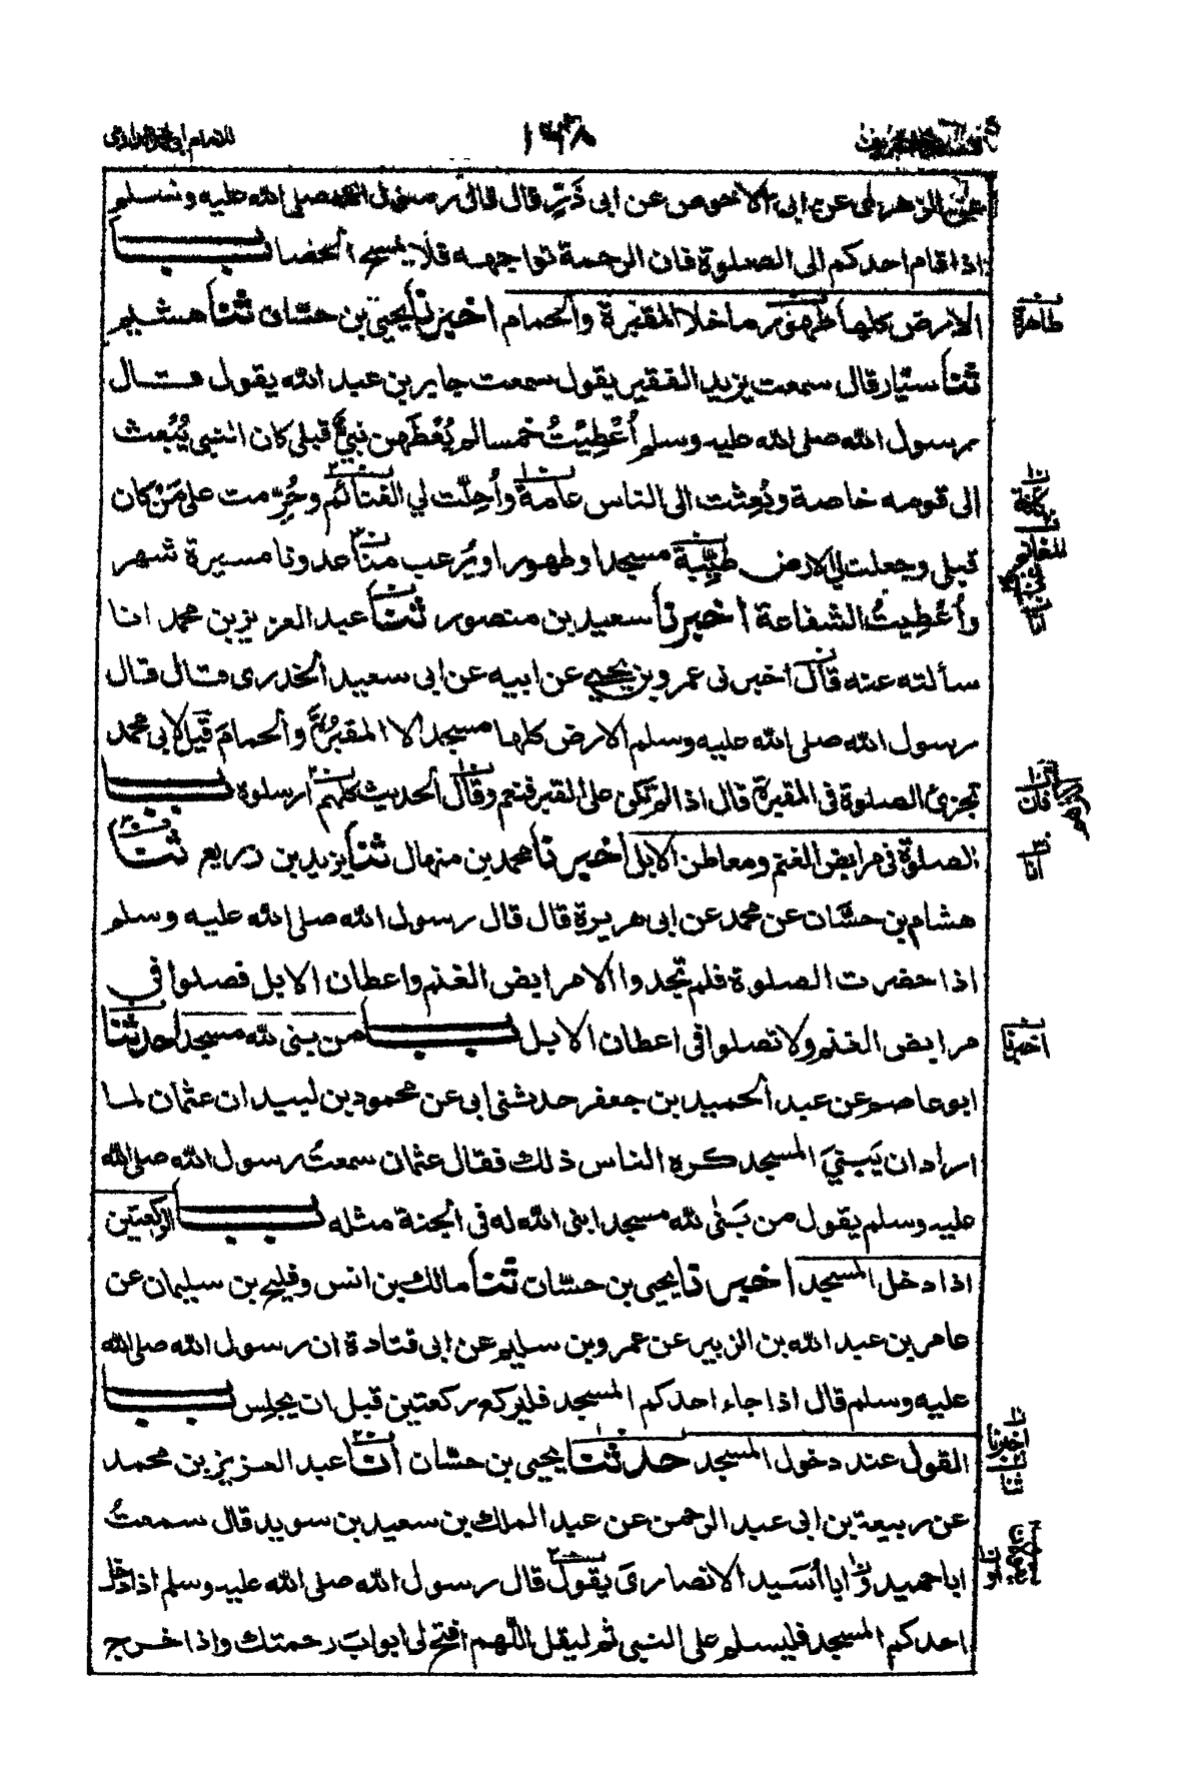 للامام أبي محمد الدارمي
١٦٨
عن الزهري عن ابى الاحوص عن ابى ذَرٍّ قال قال رسول الله صلى الله عليه وسلم
اذا قام احدكم الى الصلوة فان الرحمة تواجهه فلا يمسح الحصا بــــــاب
الارض كلها طهور ما خلا المقبرة والحمام اخبرنا يحيى بن حسّان ثنا هشيم
ثنا سيّار قال سمعت يزيد الفقير يقول سمعت جابر بن عبد الله يقول قال
رسول الله صلى الله عليه وسلم أُعْطِيْتُ خمسا لم يُعْطَهن نبيٌّ قبلى كان النبى يُبْعث
الى قومه خاصة وبُعِثت الى الناس عامة وأُحِلّت لي الغنائم وحُرِّمت على مَنْ كان
قبلى وجعلت لي الارض طيّبة مسجدا وطهورا ويُرعب منا عدونا مسيرة شهر
وأُعْطِيتُ الشفاعة اخبرنا سعيد بن منصور ثنا عبد العزيز بن محمد انا
سألته عنه قال اخبرنى عمرو بن يحيى عن ابيه عن ابى سعيد الخدرى قال قال
رسول الله صلى الله عليه وسلم الارض كلها مسجد الا المقبرة والحمام قيل لابى محمد
تجزئ الصلوة فى المقبرة قال اذا لم تكن على القبر فنعم وقال الحديث كلهم ارسلوه بــــــاب
الصلوة فى مرابض الغنم ومعاطن الابل اخبرنا محمد بن منهال ثنا يزيد بن زريع ثنا
هشام بن حسَّان عن محمد عن ابى هريرة قال قال رسول الله صلى الله عليه وسلم
اذا حضرت الصلوة فلم تجدوا الا مرابض الغنم واعطان الابل فصلوا في
مرابض الغنم ولا تصلوا فى اعطان الابل بــــــاب من بنى لله مسجدا حدثنا
ابو عاصم عن عبد الحميد بن جعفر حدثنى ابى عن محمود بن لبيد ان عثمان لما
اراد ان يَبنيَ المسجد كره الناس ذلك فقال عثمان سمعتُ رسول الله صلى الله
عليه وسلم يقول من بَنٰى لله مسجدا بنى الله له فى الجنة مثله بــــــاب الركعتين
اذا دخل المسجد اخبرنا يحيى بن حسّان ثنا مالك بن انس وفليح بن سليمان عن
عامر بن عبد الله بن الزبير عن عمرو بن سليم عن ابى قتادة ان رسول الله صلى الله
عليه وسلم قال اذا جاء احدكم المسجد فليركع ركعتين قبل ان يجلس بــــــاب
القول عند دخول المسجد حدثنا يحيى بن حسّان أنا عبد العزيز بن محمد
عن ربيعة بن ابى عبد الرحمن عن عبد الملك بن سعيد بن سويد قال سمعتُ
ابا حميد وابا أُسَيد الانصارى يقول قال رسول الله صلى الله عليه وسلم اذا دخل
احدكم المسجد فليسلم على النبى ثم ليقل اللّهم افتح لى ابواب رحمتك واذا خرج
طاهرة
اخبرنا
اخبرنا
ثنا